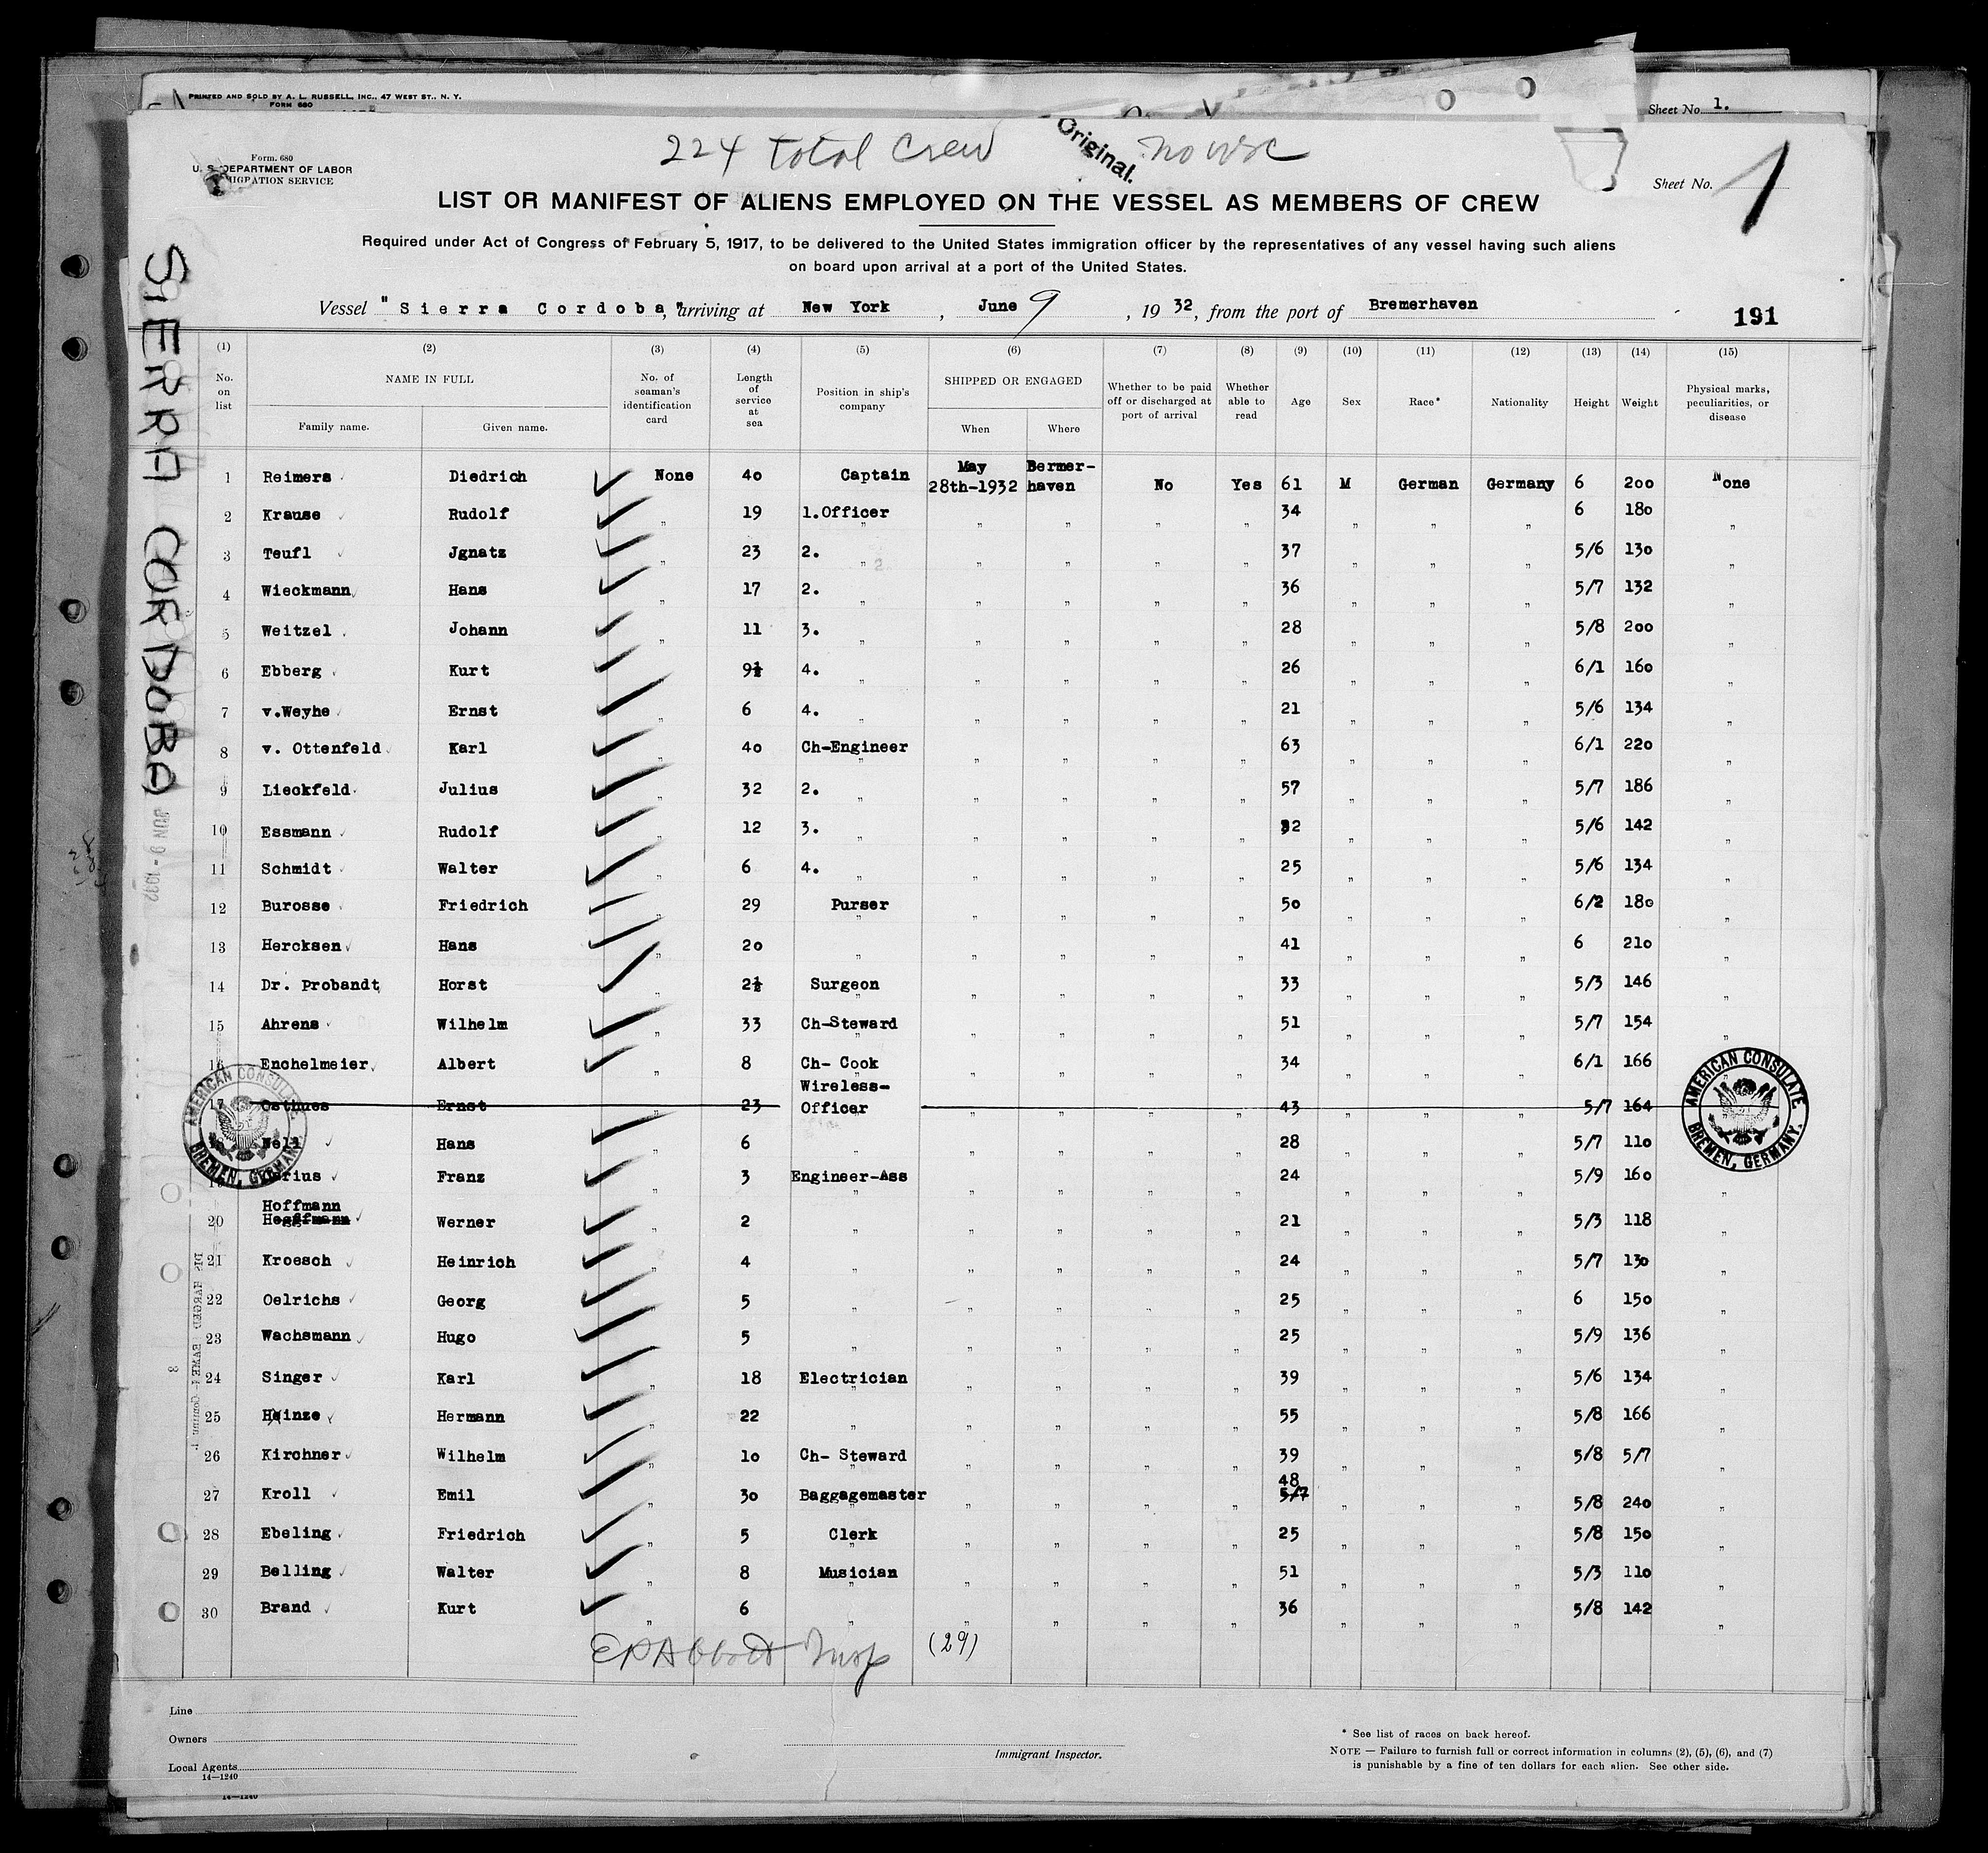 PRINTED AND SOLD BY A. L. RUSSELL, INC., 47 WEST ST., N. Y.
FORM 680
Sheet No. 1.
224 total Crew
Original.
no visc
Form. 680
U. S. DEPARTMENT OF LABOR
IMMIGRATION SERVICE
Sheet No. 1
LIST OR MANIFEST OF ALIENS EMPLOYED ON THE VESSEL AS MEMBERS OF CREW
Required under Act of Congress of February 5, 1917, to be delivered to the United States immigration officer by the representatives of any vessel having such aliens
on board upon arrival at a port of the United States.
Vessel "Sierra Cordoba", arriving at New York, June 9, 1932, from the port of Bremerhaven
191
SIERRA CORDOBA
JUN 9 - 1932
(1) (2) (3) (4) (5) (6) (7) (8) (9) (10) (11) (12) (13) (14) (15)
No. on list NAME IN FULL Family name. Given name. No. of seaman's identification card Length of service at sea Position in ship's company SHIPPED OR ENGAGED When Where Whether to be paid off or discharged at port of arrival Whether able to read Age Sex Race* Nationality Height Weight Physical marks, peculiarities, or disease
1 Reimers Diedrich None 40 Captain May 28th-1932 Bermer-haven No Yes 61 M German Germany 6 200 None
2 Krause Rudolf " 19 1.Officer " " " " 34 " " " 6 180 "
3 Teufl Jgnatz " 23 2. " " " " " 37 " " " 5/6 130 "
4 Wieckmann Hans " 17 2. " " " " " 36 " " " 5/7 132 "
5 Weitzel Johann " 11 3. " " " " " 28 " " " 5/8 200 "
6 Ebberg Kurt " 9½ 4. " " " " " 26 " " " 6/1 160 "
7 v.Weyhe Ernst " 6 4. " " " " " 21 " " " 5/6 134 "
8 v. Ottenfeld Karl " 40 Ch-Engineer " " " " 63 " " " 6/1 220 "
9 Lieckfeld Julius " 32 2. " " " " " 57 " " " 5/7 186 "
10 Essmann Rudolf " 12 3. " " " " " 32 " " " 5/6 142 "
11 Schmidt Walter " 6 4. " " " " " 25 " " " 5/6 134 "
12 Burosse Friedrich " 29 Purser " " " " 50 " " " 6/2 180 "
13 Hercksen Hans " 20 " " " " " 41 " " " 6 210 "
14 Dr. Probandt Horst " 2½ Surgeon " " " " 33 " " " 5/3 146 "
15 Ahrens Wilhelm " 33 Ch-Steward " " " " 51 " " " 5/7 154 "
16 Enchelmeier Albert " 8 Ch- Cook " " " " 34 " " " 6/1 166 "
17 Osthues Ernst " 23 Wireless-Officer " " " " 43 " " " 5/7 164 "
Hans " 6 " " " " 28 " " " 5/7 110
Franz " 3 Engineer-Ass " " " " 24 " " " 5/9 160 "
20 Hoffmann Werner " 2 " " " " " 21 " " " 5/3 118 "
21 Kroesch Heinrich " 4 " " " " " 24 " " " 5/7 130 "
22 Oelrichs Georg " 5 " " " " " 25 " " " 6 150 "
23 Wachsmann Hugo " 5 " " " " " 25 " " " 5/9 136 "
24 Singer Karl " 18 Electrician " " " " 39 " " " 5/6 134 "
25 Heinze Hermann " 22 " " " " " 55 " " " 5/8 166 "
26 Kirchner Wilhelm " 10 Ch- Steward " " " " 39 " " " 5/8 5/7 "
27 Kroll Emil " 30 Baggagemaster " " " " 48 5/7 " " " 5/8 240 "
28 Ebeling Friedrich " 5 Clerk " " " " 25 " " " 5/8 150 "
29 Belling Walter " 8 Musician " " " " 51 " " " 5/3 110 "
30 Brand Kurt " 6 " " " " " 36 " " " 5/8 142 "
AMERICAN CONSULATE BREMEN, GERMANY.
AMERICAN CONSULATE BREMEN, GERMANY.
EPAbbott Insp (29)
Line
Owners
Local Agents
14—1240
Immigrant Inspector.
* See list of races on back hereof.
NOTE — Failure to furnish full or correct information in columns (2), (5), (6), and (7)
is punishable by a fine of ten dollars for each alien. See other side.
14—1240